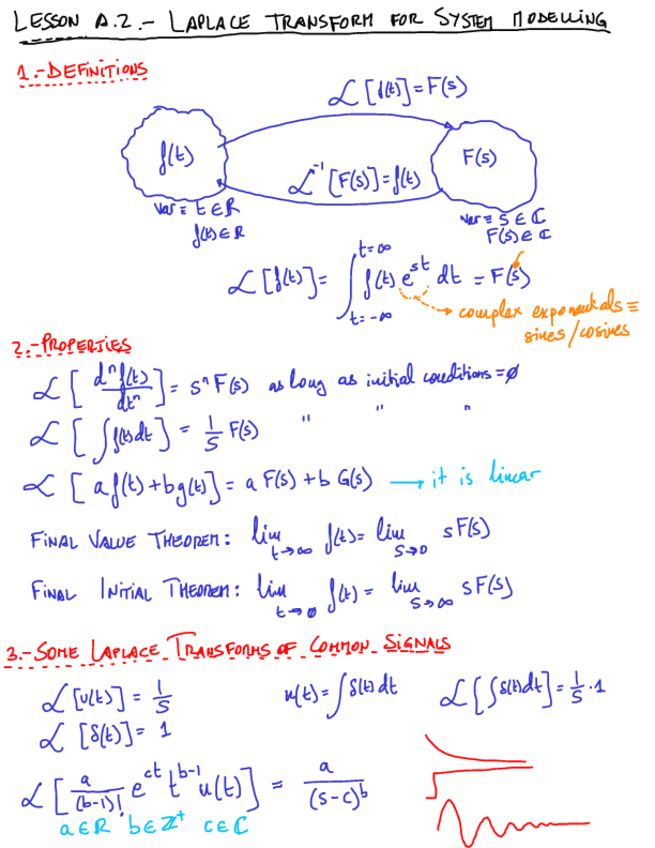 LESSON A.2.- LAPLACE TRANSFORM FOR SYSTEM MODELLING
1.-DEFINITIONS
ℒ[f(t)]=F(s)
f(t)
F(s)
ℒ⁻¹[F(s)]=f(t)
var ≡ t∈R
f(t)∈R
var ≡ s∈ℂ
F(s)∈ℂ
ℒ[f(t)]= ∫_{t=-∞}^{t=∞} f(t) e^{st} dt = F(s)
complex exponentials ≡
sines/cosines
2.-PROPERTIES
ℒ[dⁿf(t)/dtⁿ]= sⁿ F(s) as long as initial conditions=∅
ℒ[∫f(t)dt] = 1/s F(s) " " "
ℒ[a f(t)+b g(t)]= a F(s)+b G(s) → it is linear
FINAL VALUE THEOREM: lim_{t→∞} f(t)= lim_{s→0} sF(s)
FINAL INITIAL THEOREM: lim_{t→∅} f(t) = lim_{s→∞} sF(s)
3.-SOME LAPLACE TRANSFORMS OF COMMON SIGNALS
ℒ[u(t)] = 1/s u(t)=∫δ(t)dt ℒ[∫δ(t)dt]=1/s·1
ℒ[δ(t)]= 1
ℒ[a/(b-1)! e^{ct} t^{b-1} u(t)] = a/(s-c)^b
a∈R b∈Z⁺ c∈ℂ